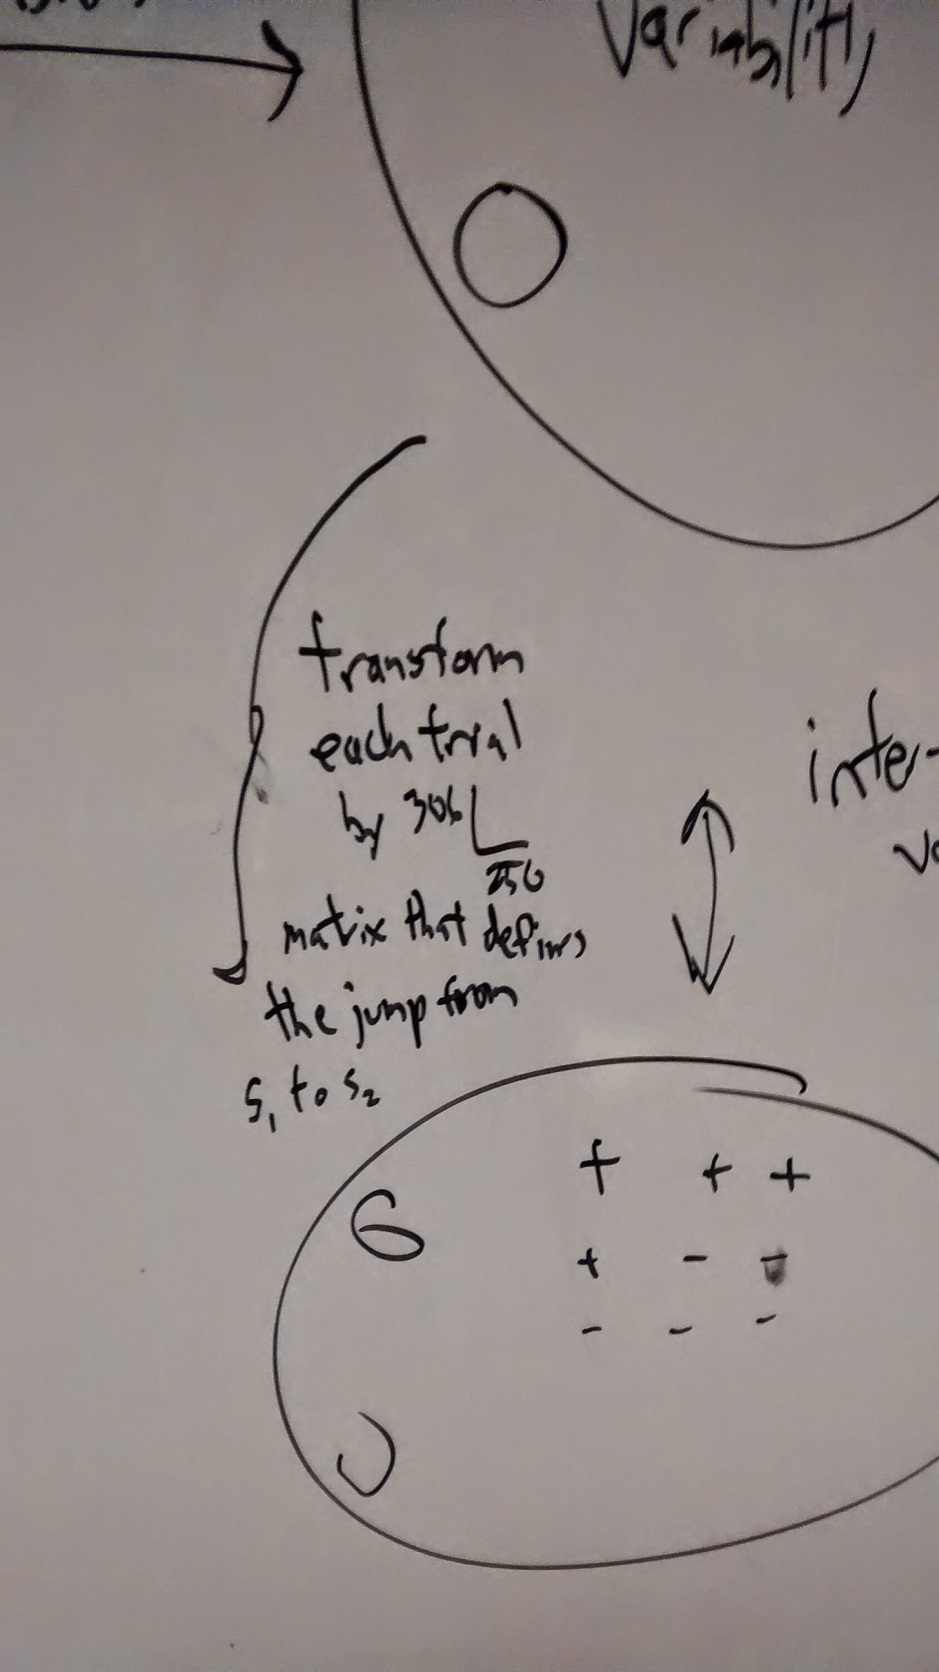 Variability
transform
each trial
by 306
250
matrix that defines
the jump from
S₁ to S₂
inte-
+ + +
+ - -
- - -